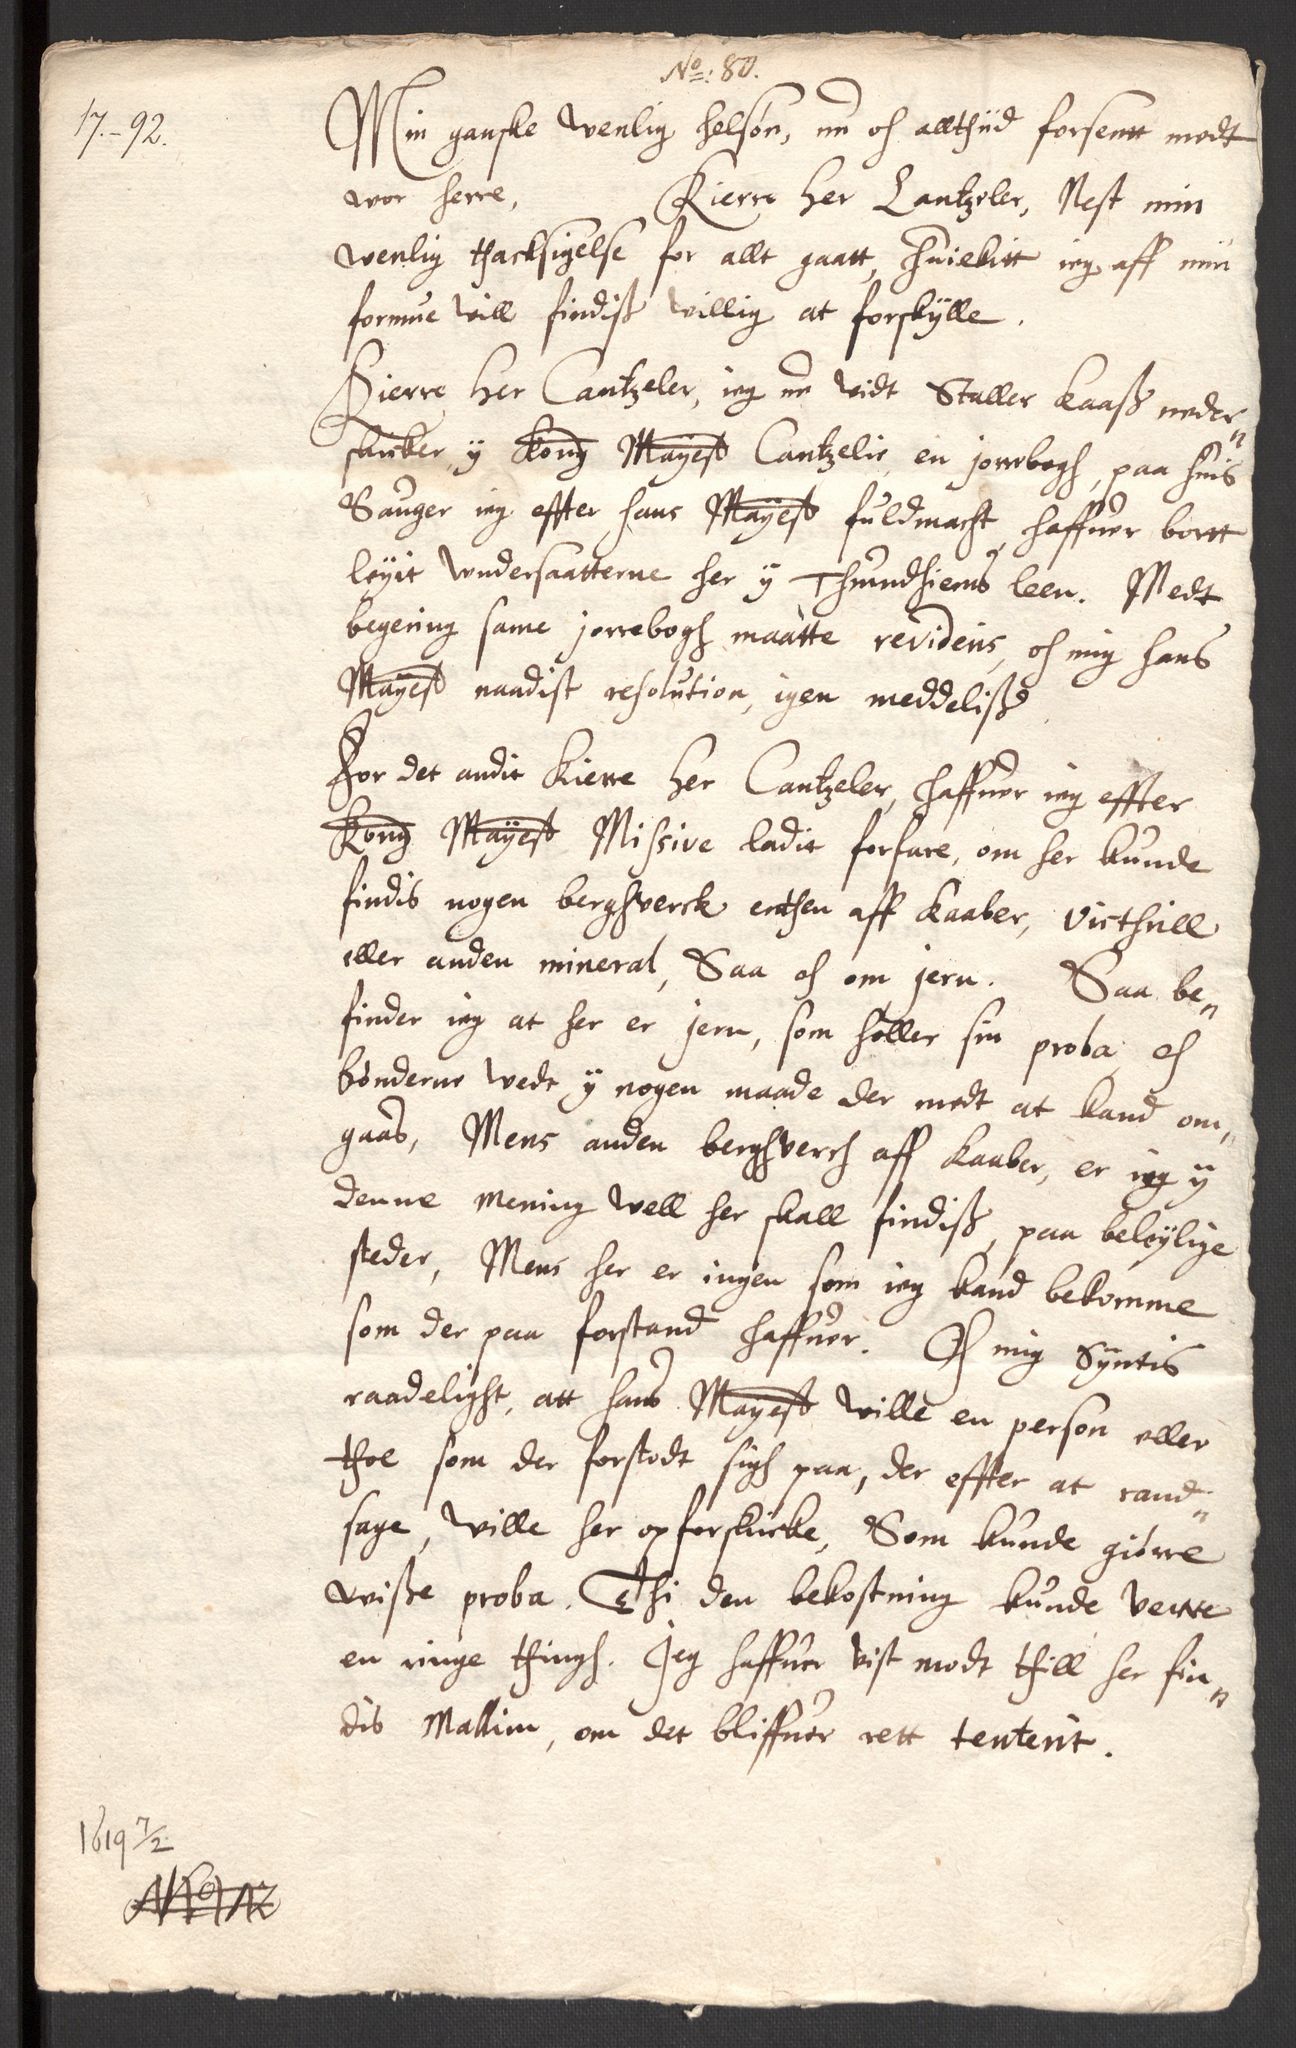 No: 80.
17.-92.
Min ganske venlig helsen, nu oh alltiid forsentt medt
wor herre, Kierre her Cantzeler, Nest min
wenlig thacksigelse for allt gaatt, huilckitt ieg aff min
formue will findiss willig at forskylle.
Kierre her Cantzeler, ieg nu vidt Staller Kaass neder„
skicker y Kong Mayest Cantzelie, en jorrbogh, paa huis
Sauger ieg effter hans Mayest fuldmacht, haffuer bortt
leyit undersaatterne her y Thrundhiems leen. Medt
begering same jorrebogh maatte revideris, oh mig hans
Mayest naadist resolution, igen meddeliss
For det andit Kierre her Cantzeler, haffuer ieg effter
Kong Mayest Missive ladit forfare, om her kunde
findis nogen berghverck enthen aff kaaber, victhrill
eller anden mineral, Saa oh om jern. Saa be„
finder ieg at her er jern, som holler sin proba, oh
bønderne wedt y nogen maade der medt at kand om„
gaas, Mens anden berghverch aff kaaber, er ieg y
denne mening well her skall findiss, paa beleylige
steder, Mens her er ingen som ieg kand bekomme
som der paa forstand haffuer. Oh mig Syntis
raadelight, att hans Mayest wille en person eller
thoe som der forstodt sigh paa, der effter at rand„
sage, wille her opforskicke, Som kunde giørre
wisse proba. Thi den bekostning kunde verre
en ringe thingh. Jeg haffuer vist modt thill her fin„
dis Mallim, om det bliffuer rett tenterit.
1619 7/2